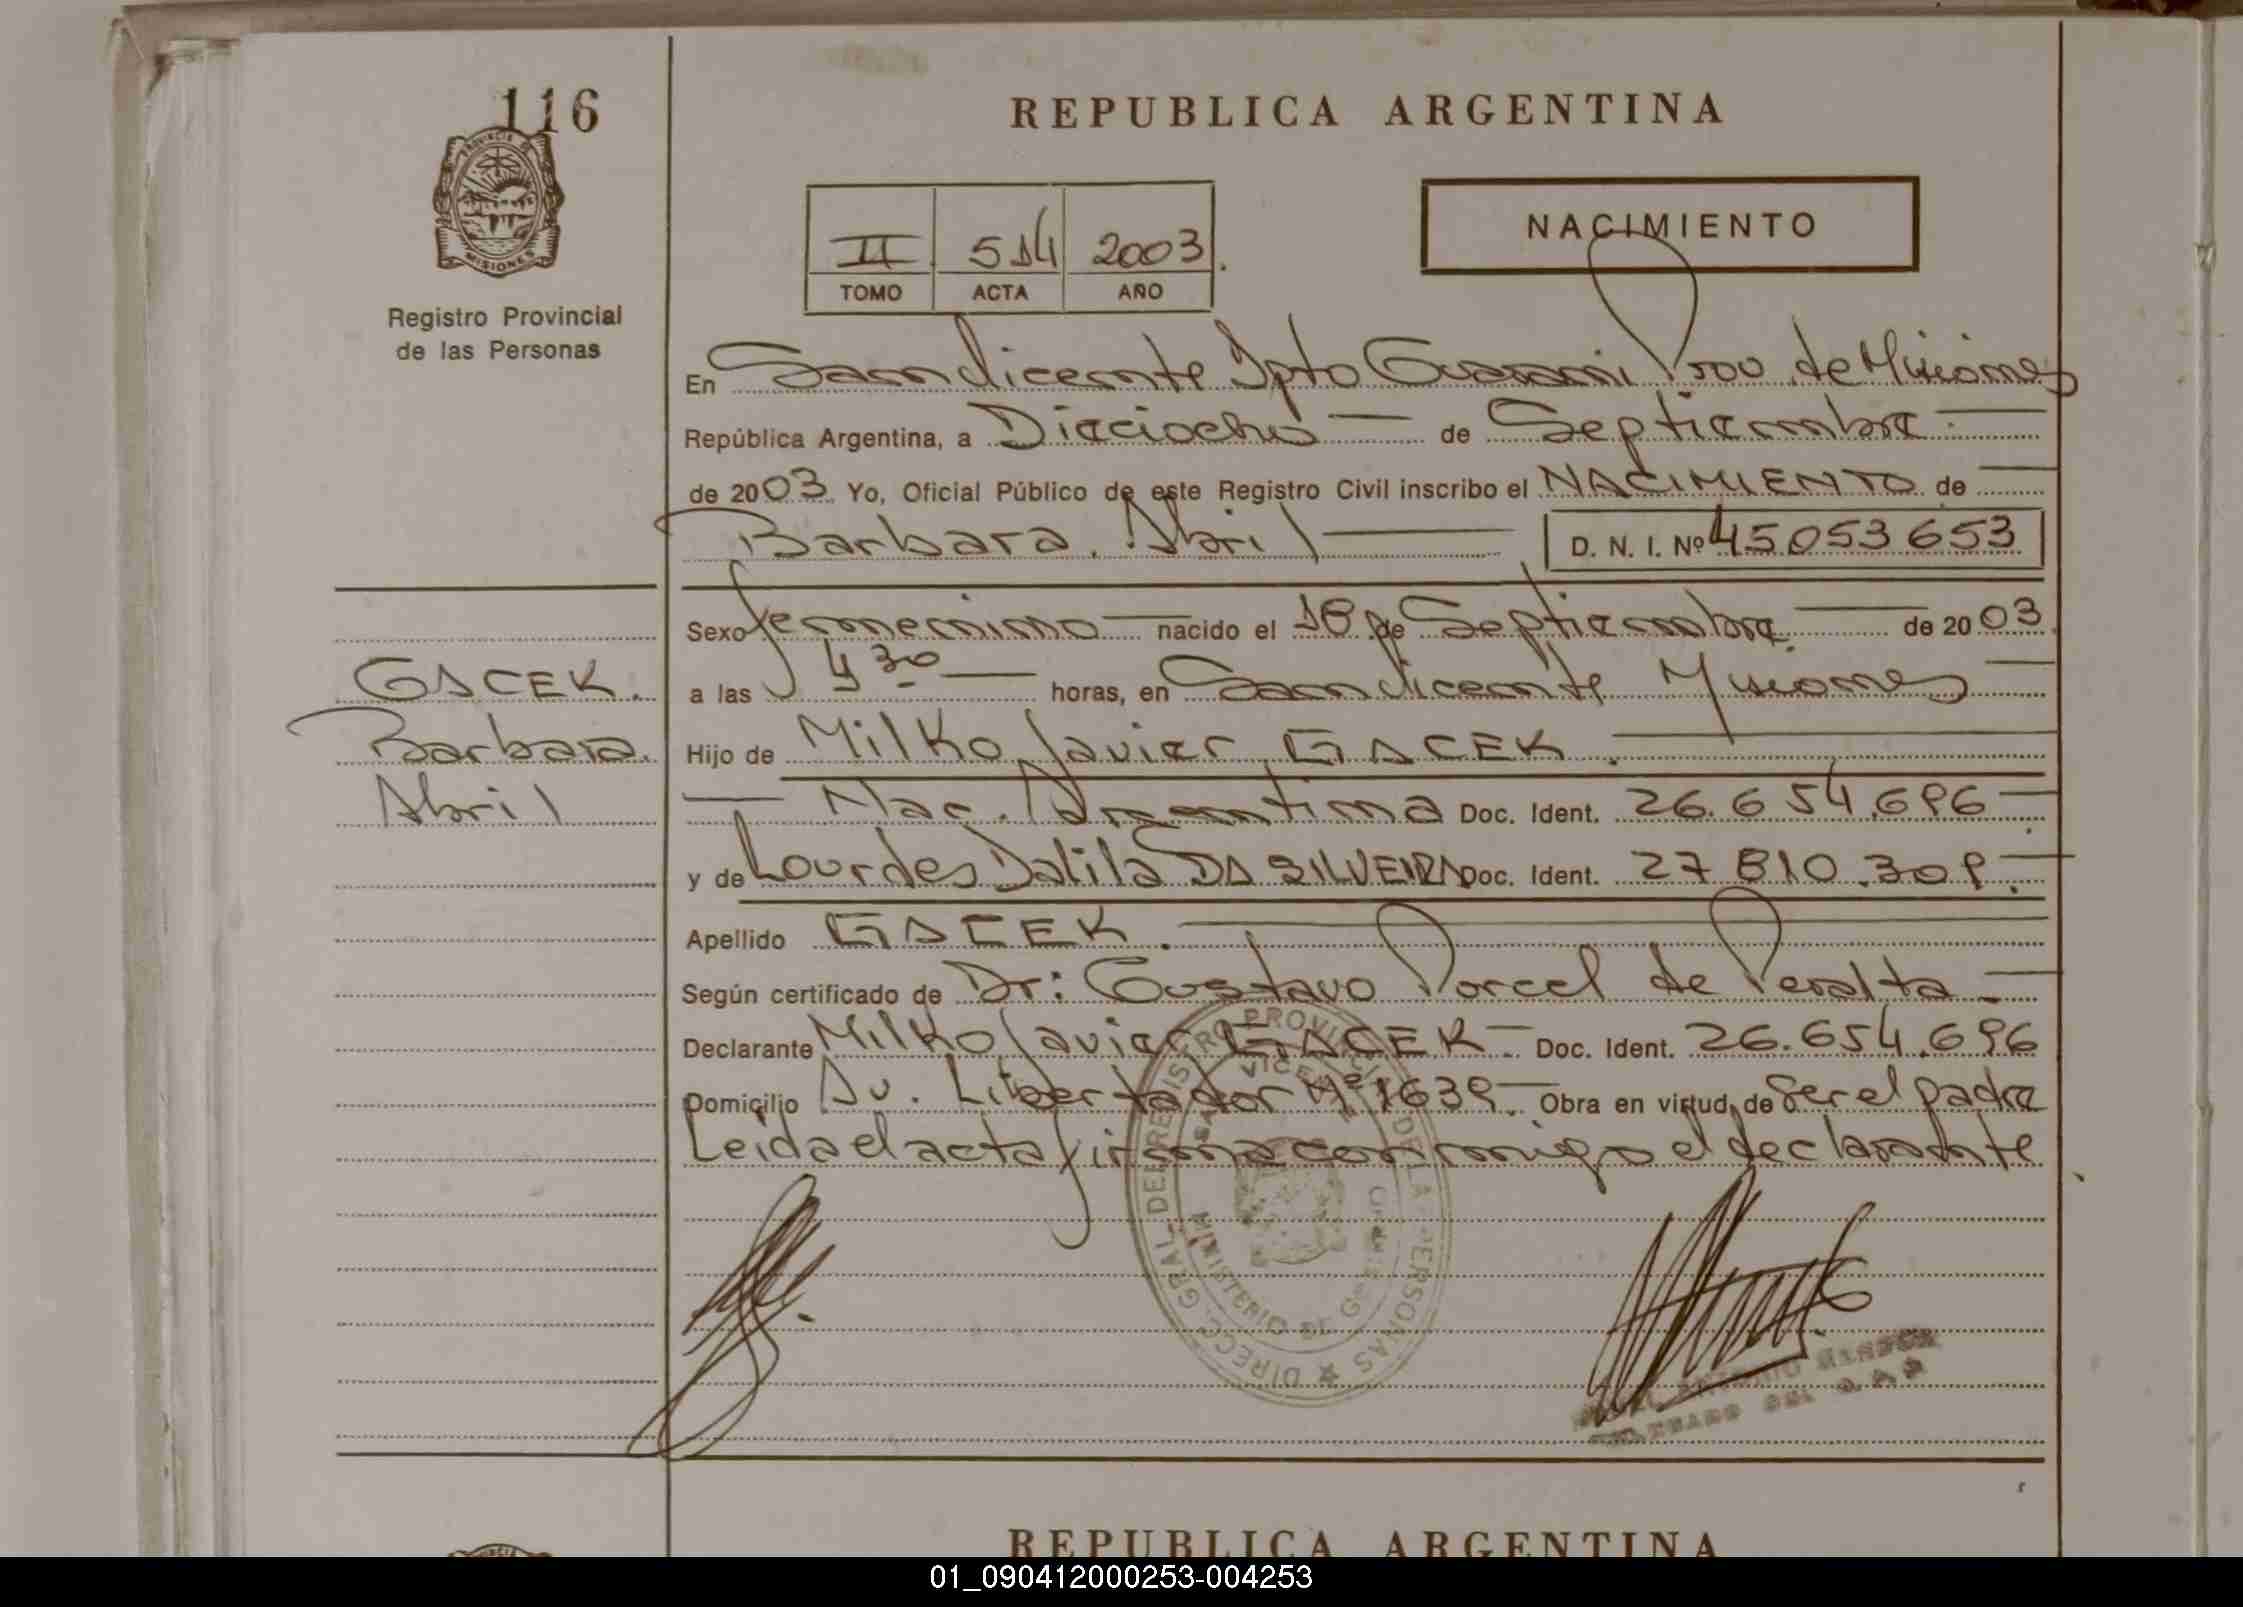 116
REPUBLICA ARGENTINA
PROVINCIA DE
MISIONES
Registro Provincial
de las Personas
II 514 2003.
TOMO ACTA AÑO
NACIMIENTO
En San Vicente Dpto Guarani Prov de Misiones
República Argentina, a Dieciocho de Septiembre
de 2003 Yo, Oficial Público de este Registro Civil inscribo el NACIMIENTO de
Barbara Abril D. N. I. Nº 45053653
Sexo femenino nacido el 18 de Septiembre de 2003
a las 4 30 horas, en San Vicente Misiones
GACEK.
Barbara
Abril
Hijo de Milko Javier GACEK.
Nac. Argentina Doc. Ident. 26.654.696
y de Lourdes Dalila DA SILVEIRA Doc. Ident. 27 810.309.
Apellido GACEK.
Según certificado de Dr: Gustavo Porcel de Peralta
Declarante Milko Javier GACEK Doc. Ident. 26.654.696
Domicilio Av. Libertador Nº 1639 Obra en virtud de Ser el padre
Leida el acta firma conmigo el declarante.
DIRECC. GRAL. DEL REGISTRO PROVINCIAL DE LAS PERSONAS
MINISTERIO DE GOBIERNO
REPUBLICA ARGENTINA
01_090412000253-004253